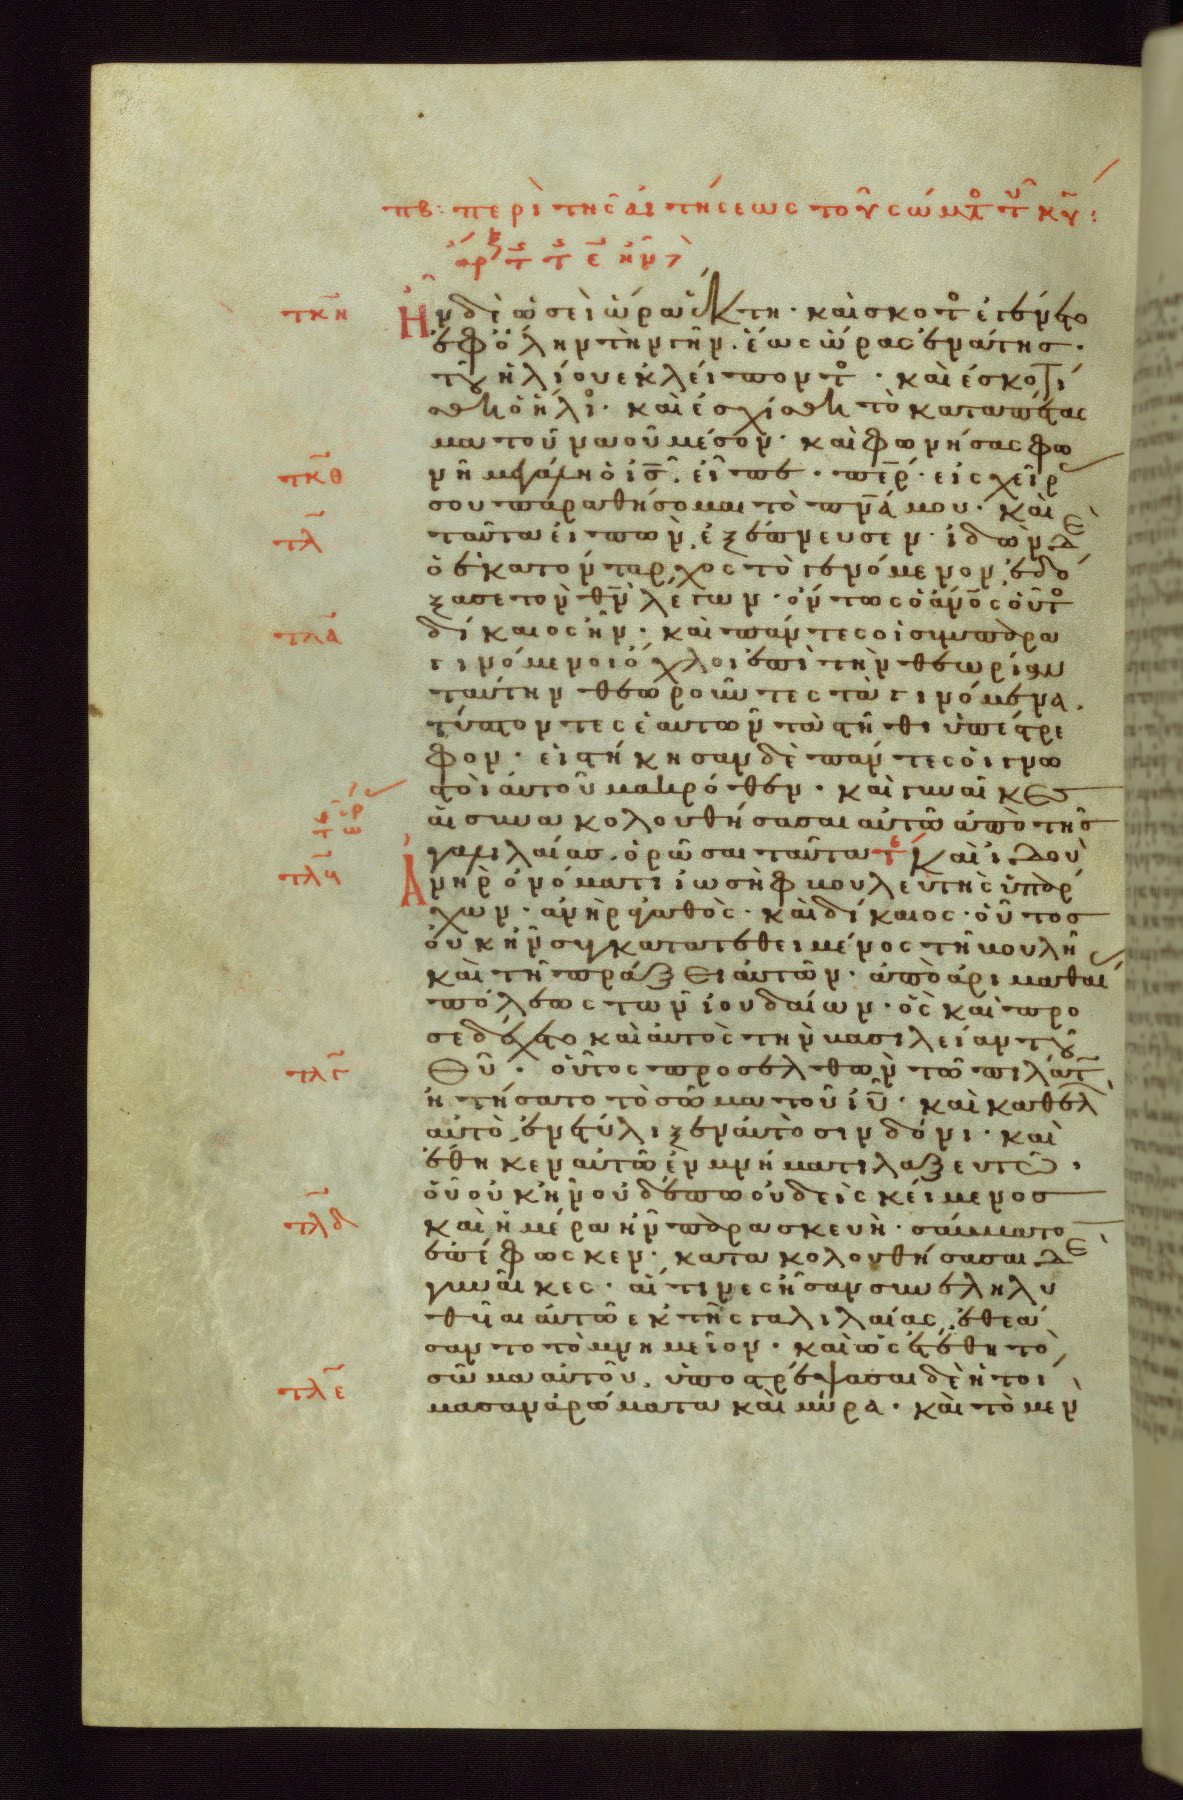 πβ: περὶ τῆς αἰτήσεως τοῦ σώματο τοῦ κῦ:
τκη Ἦν δὲ ὡσεὶ ὥρα ἕκτη· καὶ σκότο ἐγένετο
ἐφ ὅλην τὴν γῆν. ἕως ὥρας ἐνάτης·
τοῦ ἡλίου ἐκλείποντο· καὶ ἐσκοτί
σθη ὁ ἥλιο· καὶ ἐσχίσθη τὸ καταπέτας
μα τοῦ ναοῦ μέσον· καὶ φωνήσας φω
τκθ νῆ μεγάλη ὁ ἰς̅ εἶπεν· περ· εἰς χεῖρ
σου παραθήσομαι τὸ πνα μου· καὶ
τλ ταῦτα εἰπὼν ἐξέπνευσεν· ἰδὼν δὲ
ὁ ἑκατόνταρχος τὸ γενόμενον, ἐδό
ξασε τὸν θν λέγων· ὄντως ὁ ἀνος οὗτο
τλα δίκαιος ἦν· καὶ πάντες οἱ συμπαρα
γινόμενοι ὄχλοι ἐπὶ τὴν θεωρίαν
ταύτην θεωροῦντες τὰ γινόμενα,
τύπτοντες ἑαυτῶν τὰ στήθη ὑπέστρε
φον· εἱστήκησαν δὲ πάντες οἱ γνω
στοὶ αὐτοῦ μακρόθεν· καὶ γυναῖκες
αἱ συνακολουθήσασαι αὐτῶ ἀπὸ τῆς
γαλιλαίας, ὁρῶσαι ταῦτα Καὶ ἰδοὺ
Ἀνὴρ ὀνόματι ἰωσὴφ βουλευτὴς ὑπάρ
χων· ἀνὴρ ἀγαθὸς· καὶ δίκαιος· οὗτος
οὐκ ἦν συγκατατεθειμένος τῆ βουλῆ
καὶ τῆ πράξει αὐτῶν· ἀπὸ ἀριμαθαί
πόλεως τῶν ἰουδαίων· ὃς καὶ προ
σεδέχετο καὶ αὐτὸς τὴν βασιλείαν τοῦ
τλγ Θῦ· οὗτος προσελθὼν τῶ πιλάτ
ἠτήσατο τὸ σῶμα τοῦ ἰῦ· καὶ καθελ
αὐτὸ, ἐνετύλιξεν αὐτὸ σινδόνι· καὶ
ἔθηκεν αὐτῶ ἐν μνήματι λαξευτῶ·
οὗ οὐκ ἦν οὐδέπω οὐδεὶς κείμενος
τλδ καὶ ἡμέρα ἦν παρασκευὴ· σάββατο
ἐπέφωσκεν· κατακολουθήσασαι δὲ
γυναῖκες· αἵτινες ἦσαν συνεληλυ
θῆαι αὐτῶ ἐκ τῆς γαλιλαίας, ἐθεά
σαντο τὸ μνημεῖον· καὶ ὡς ἐτέθη τὸ
τλε σῶμα αὐτοῦ, ὑποστρέψασαι δὲ ἡτοί
μασαν ἀρώματα καὶ μύρα· καὶ τὸ μεν